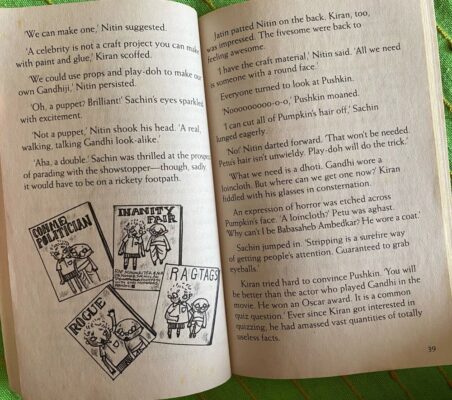 'We can make one,' Nitin suggested.
'A celebrity is not a craft project you can make
with paint and glue,' Kiran scoffed.
'We could use props and play-doh to make our
own Gandhiji,' Nitin persisted.
'Oh, a puppet? Brilliant!' Sachin's eyes sparkled
with excitement.
'Not a puppet,' Nitin shook his head. 'A real,
walking, talking Gandhi look-alike.'
'Aha, a double.' Sachin was thrilled at the prospect
of parading with the showstopper—though, sadly
it would have to be on a rickety footpath.
CONMEN
POLITICIAN
INANITY
FAIR
RAGTAGS
ROGUE
Jatin patted Nitin on the back. Kiran, too,
was impressed. The fivesome were back to
feeling awesome.
'I have the craft material,' Nitin said. 'All we need
is someone with a round face.'
Everyone turned to look at Pushkin.
'Nooooooooo-o-o,' Pushkin moaned.
'I can cut all of Pumpkin's hair off,' Sachin
lunged eagerly.
'No!' Nitin darted forward. 'That won't be needed.
Petu's hair isn't unwieldy. Play-doh will do the trick.'
'What we need is a dhoti. Gandhi wore a
loincloth. But where can we get one now?' Kiran
fiddled with his glasses in consternation.
An expression of horror was etched across
Pumpkin's face. 'A loincloth?' Petu was aghast.
'Why can't I be Babasaheb Ambedkar? He wore a coat.'
Sachin jumped in. 'Stripping is a surefire way
of getting people's attention. Guaranteed to grab
eyeballs.'
Kiran tried hard to convince Pushkin. 'You will
be better than the actor who played Gandhi in the
movie. He won an Oscar award. It is a common
quiz question.' Ever since Kiran got interested in
quizzing, he had amassed vast quantities of totally
useless facts.
39